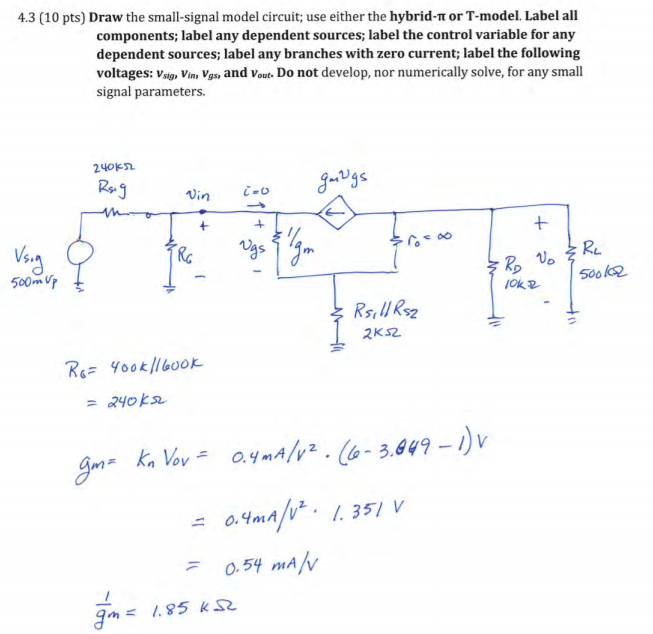 4.3 (10 pts) Draw the small-signal model circuit; use either the hybrid-π or T-model. Label all
components; label any dependent sources; label the control variable for any
dependent sources; label any branches with zero current; label the following
voltages: Vsig, Vin, Vgs, and Vout. Do not develop, nor numerically solve, for any small
signal parameters.
240KΩ
Rsig
Vin
i=0
gmVgs
+
+
+
Vsig
500mVp
RG
Vgs
1/gm
ro = ∞
RD
10KΩ
Vo
RL
500KΩ
-
-
-
RS1//RS2
2KΩ
RG= 400K//600K
= 240KΩ
gm= Kn Vov = 0.4mA/V² . (6-3.649-1)V
= 0.4mA/V² . 1.351 V
= 0.54 mA/V
1/gm = 1.85 KΩ